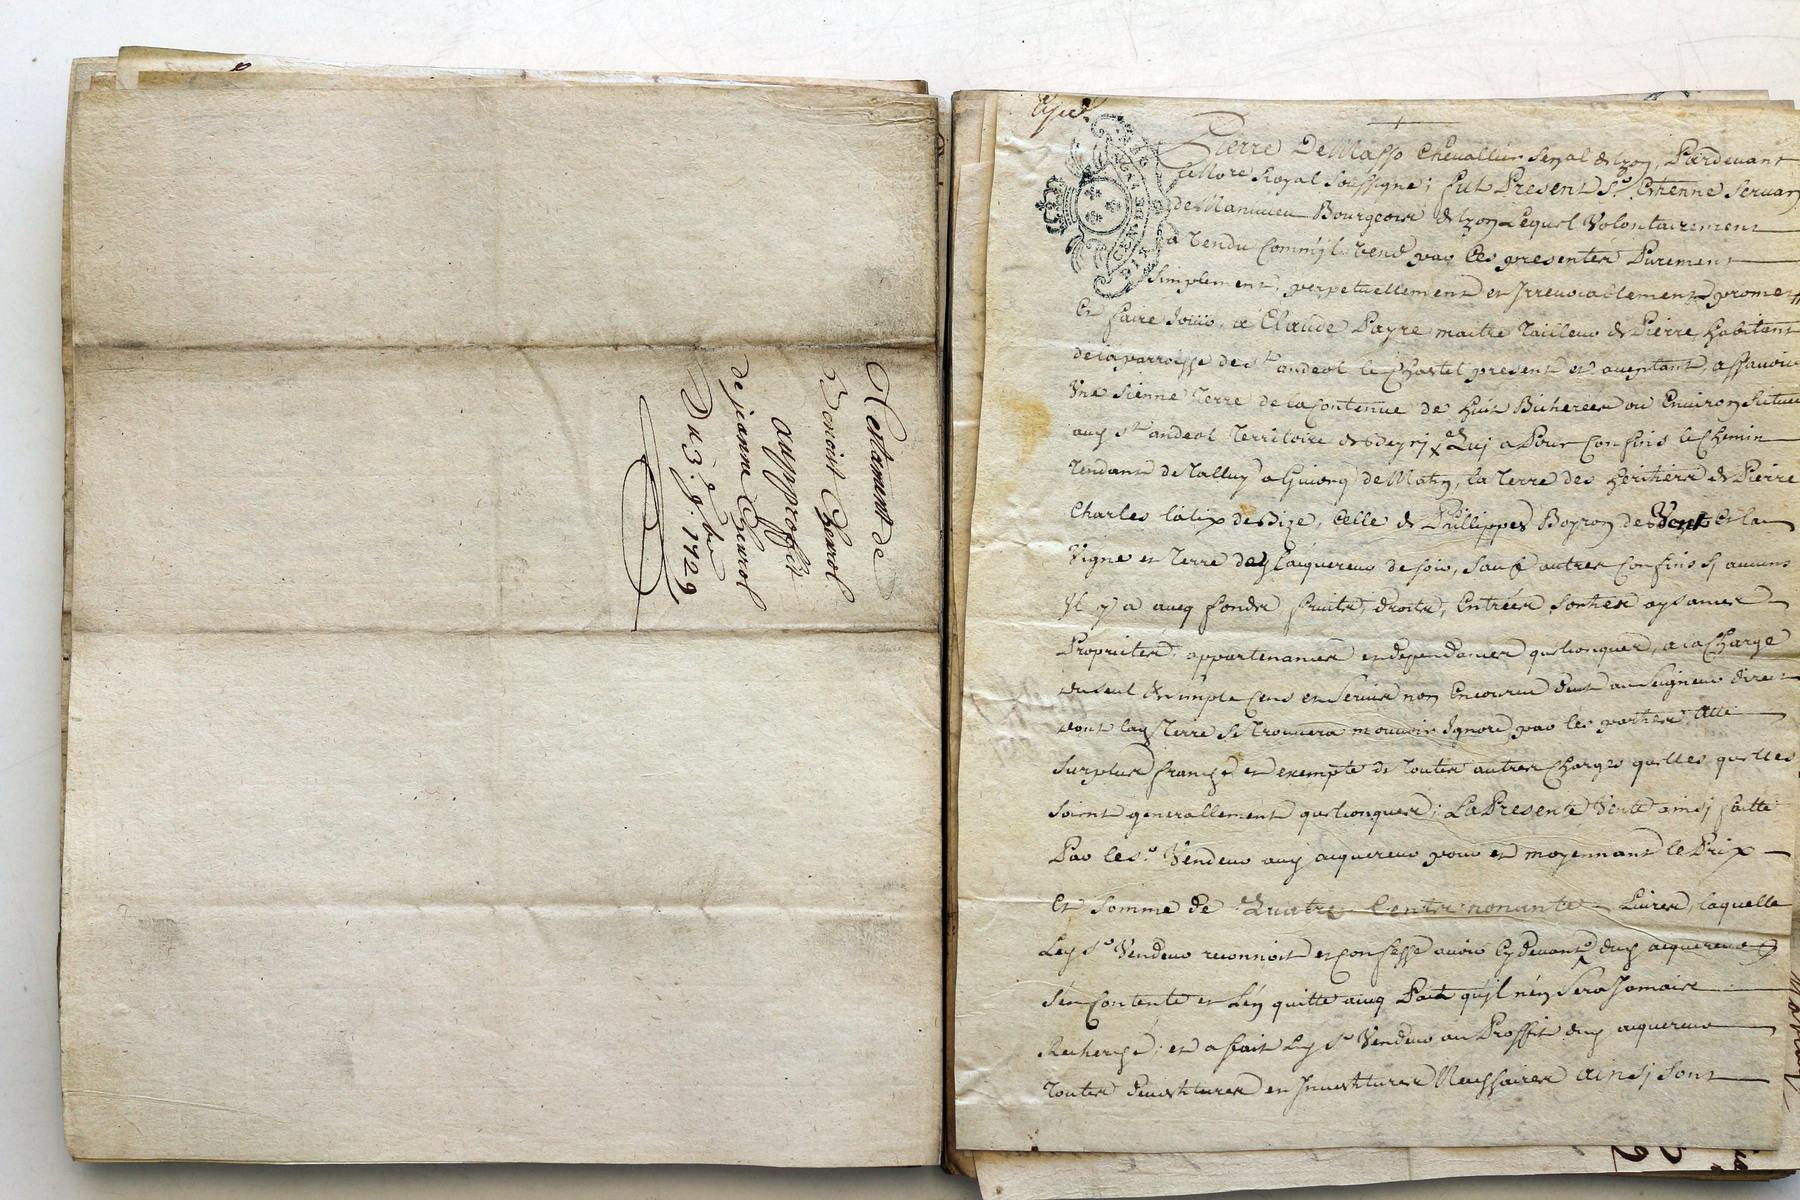 Testament de
Benoist Cherol
au proffit
de jeanne Cherol
Du 3 1729
Pierre De Masso Chevallier Senal de Lyon, Pardevant
Royal soussigné; fut Present Sr. Etienne Servan
de Manuieu Bourgeois de Lyon Lequel Volontairement
a Vendu comm'il vend par ces presentes Purement
simplement, perpetuellement et Irreuocablement promet
et faire Jouir, a Claude Payre maitre Tailleur de Pierre habitant
de la parroisse de st andeol le Chastel present et aceptant, assauoir
Vne sienne Terre de la contenue de huit Bicherees ou Enuiron situee
aud st andeol Territoire Quj a Pour confins le chemin
Tendant de Talluy a Giuors de Matin, la Terre des heritiers de Pierre
Charles de Bize, Celle de Phillippes Boyron de vent et la
Vigne et Terre dud acquereur de soir, sauf autres confins sj aucuns
Il y a aueq fonds fruits, droits, Entrées, sorties aysances
Proprietes, appartenances et dependances quelconques, a la Charge
du seul & simple cens et seruis non Encouru deut au seigneur direct
dont lad Terre se trouuera mouuoir Ignoré par les parties, Au
surplus franche et exempte de toutes autres Charges quelles quelles
soient generallement quelconques; La Presente Vente ainsj faitte
Par led sr. Vendeur aud acquereur pour et moyennant le Prix
et somme de Quatre Cents nonante Liures, laquelle
Led sr Vendeur reconnoit et confesse auoir Cy deuant dud acquereur
s'en contente et L'en quitte aueq Pact qu'jl n'en sera Jamais
Recherché; et a fait Led sr Vendeur au Proffit dud acquereur
Toutes deuestitures et Inuestitures Necessaires ainsj sont